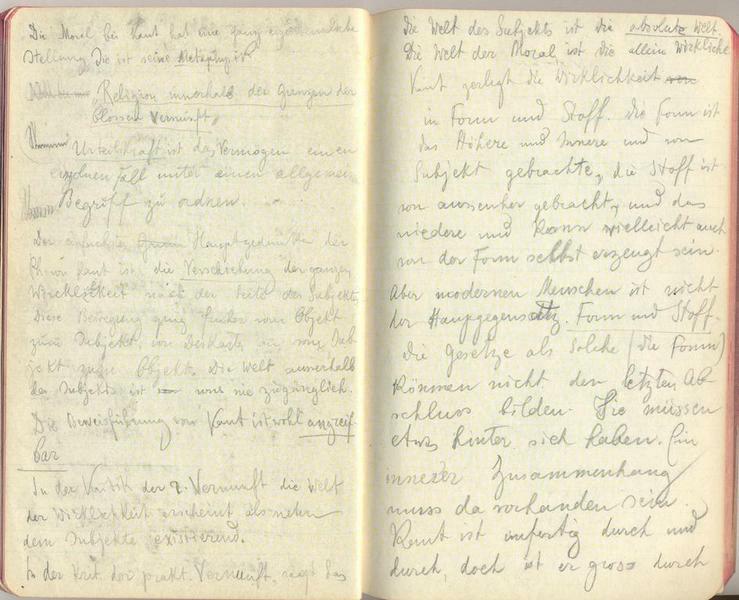 Die Moral bei Kant hat eine ganz eigentümliche
Stellung. Die ist seine Metaphysik
„Religion innerhalb der Grenzen der
blossen Vernunft"
Urteilskraft ist das Vermögen einen
einzelnen Fall unter einen allgemein
Begriff zu ordnen.
Der Hauptgedanke der
Kant ist: die Verschiebung der ganzen
Wirklichkeit nach der Seite des Subjekts
Diese Bewegung ging früher vom Objekt
zum Subjekt, von Deskartes an vom Sub-
jekt zum Objekt. Die Welt ausserhalb
des Subjekts ist uns nie zugänglich.
Die Beweisführung von Kant ist wohl angreif-
bar
In der Kritik der r. Vernunft die Welt
der Wirklichkeit erscheint als neben
dem Subjekte existierend.
In der Krit. der prakt. Vernunft, sagt das
Die Welt des Subjekts ist die absolute Welt.
Die Welt der Moral ist die allein wirkliche
Kant zerlegt die Wirklichkeit
in Form und Stoff. Die Form ist
das Höhere und Innere und vom
Subjekt gebrachte, die Stoff ist
von aussenher gebracht, und das
niedere und kann vielleicht auch
von der Form selbst erzeugt sein.
Aber modernen Menschen ist nicht
der Haupgegensatz. Form und Stoff.
Die Gesetze als Solche (die Form)
können nicht den letzten Ab-
schluss bilden. Sie müssen
etwas hinter sich haben. Ein
innerer Zusammenhang
muss da vorhanden sein.
Kant ist unfertig durch und
durch, doch ist er gross durch